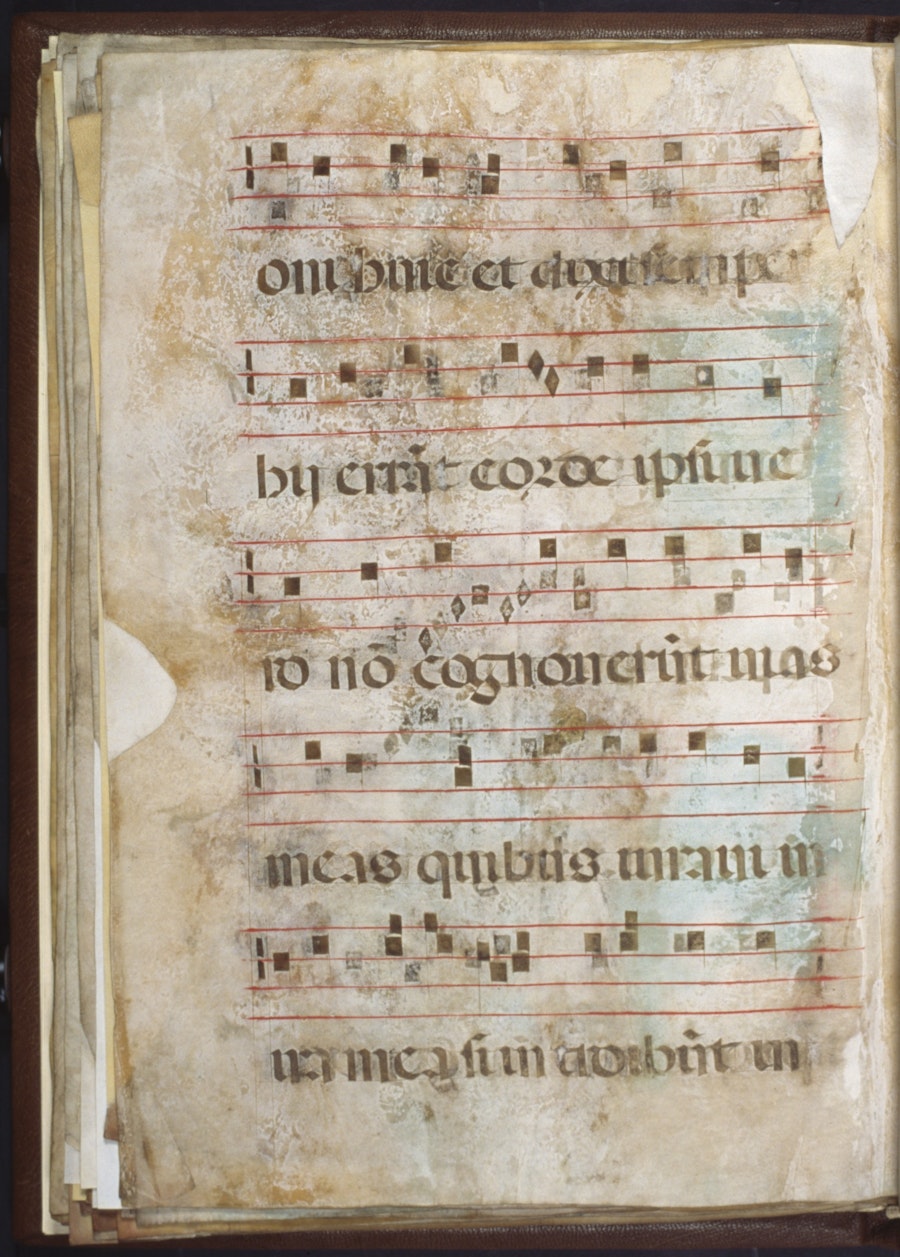 oni huic et dixi sempe
hij errāt corde ipsi ue
ro nō cognouerūt uias
meas quibus iuraui in
ira mea si in troibūt in